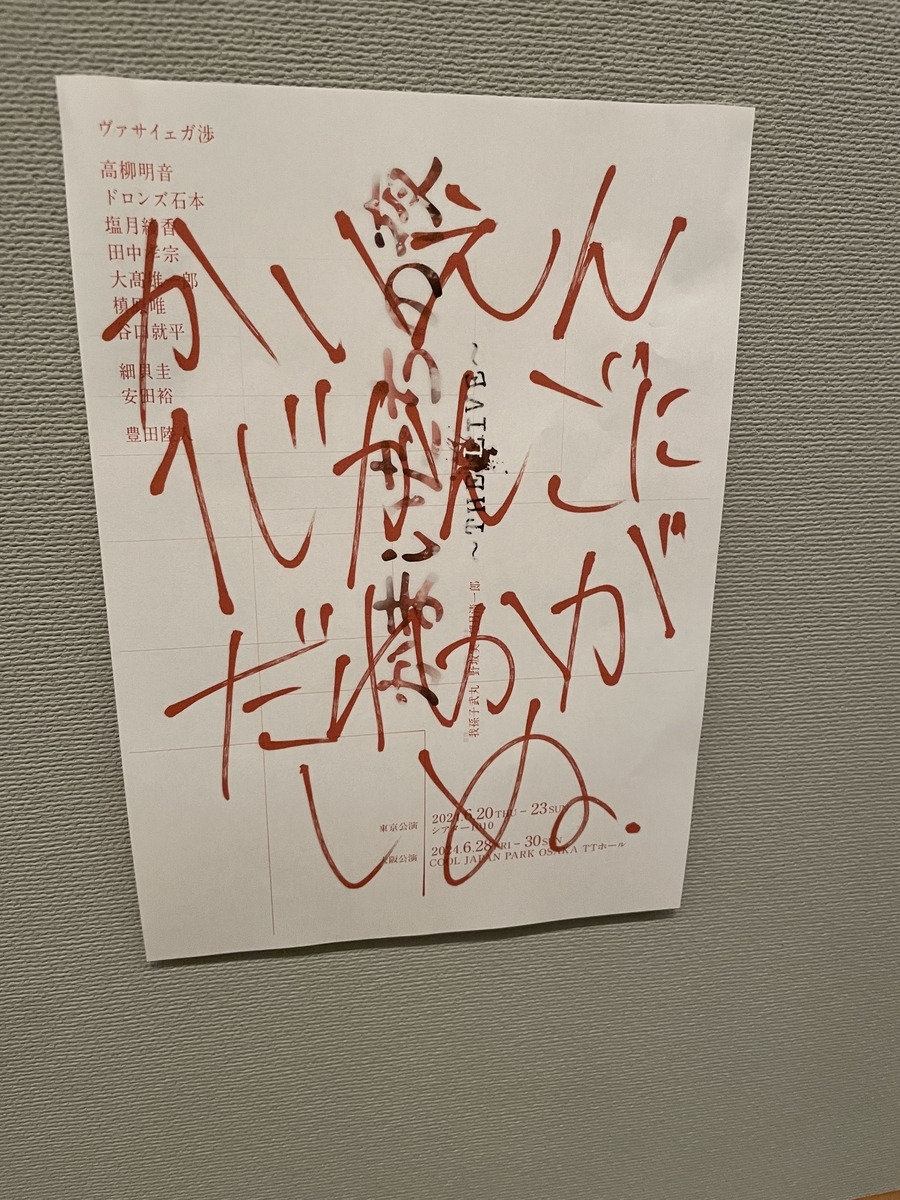 ヴァサイェガ渉
高柳明音
ドロンズ石本
塩月綾香
田中孝宗
大髙雄一郎
槙原唯
谷口就平
細貝圭
安田裕
豊田陸人
かまいたちの夜
~THE LIVE~
我孫子武丸 野坂実
かいえん
1じかんごに
だれかが
しぬ。
東京公演
2024.6.20THU – 23SUN
シアター1010
大阪公演
2024.6.28FRI – 30SUN
COOL JAPAN PARK OSAKA TTホール